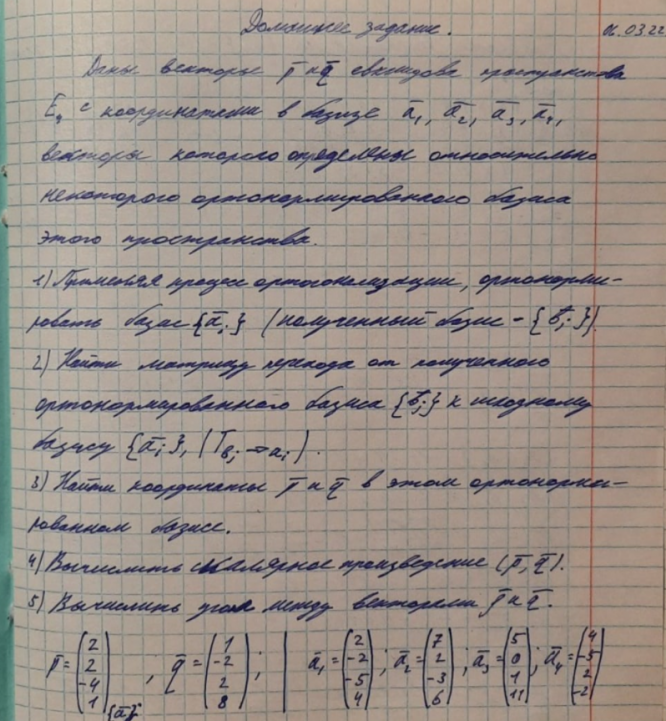 Домашнее задание. 06.03.22
Даны векторы p̄ и q̄ евклидова пространства
E₄ с координатами в базисе ā₁, ā₂, ā₃, ā₄,
векторы которого определены относительно
некоторого ортонормированного базиса
этого пространства.
1) Применяя процесс ортогонализации, ортонорми-
ровать базис {āᵢ} (полученный базис - {b̄ᵢ}).
2) Найти матрицу перехода от полученного
ортонормированного базиса {b̄ᵢ} к исходному
базису {āᵢ}, (T bᵢ→aᵢ).
3) Найти координаты p̄ и q̄ в этом ортонорми-
рованном базисе.
4) Вычислить скалярное произведение (p̄, q̄).
5) Вычислить угол между векторами p̄ и q̄.
p̄ = (2 2 -4 1){ā}, q̄ = (1 -2 2 8); | ā₁ = (2 -2 -5 4); ā₂ = (7 2 -3 6); ā₃ = (5 0 1 11); ā₄ = (4 -5 2 -2)